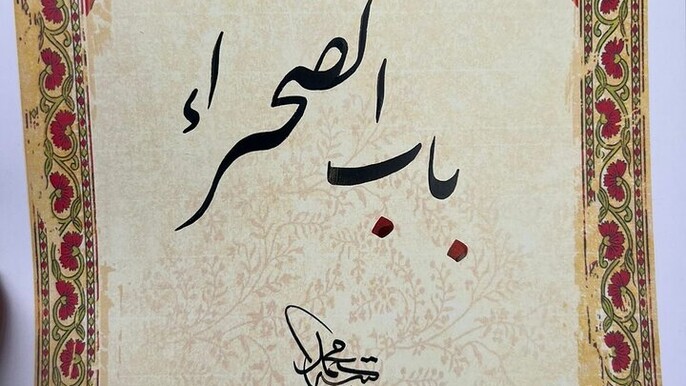 باب الصحراء